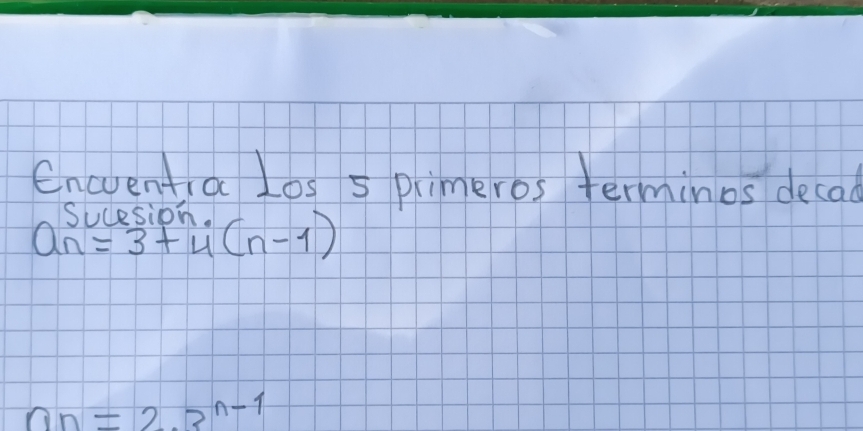 Encuentra los 5 primeros terminos decad
Sucesión.
an = 3 + 4(n-1)
an = 2.3^n-1